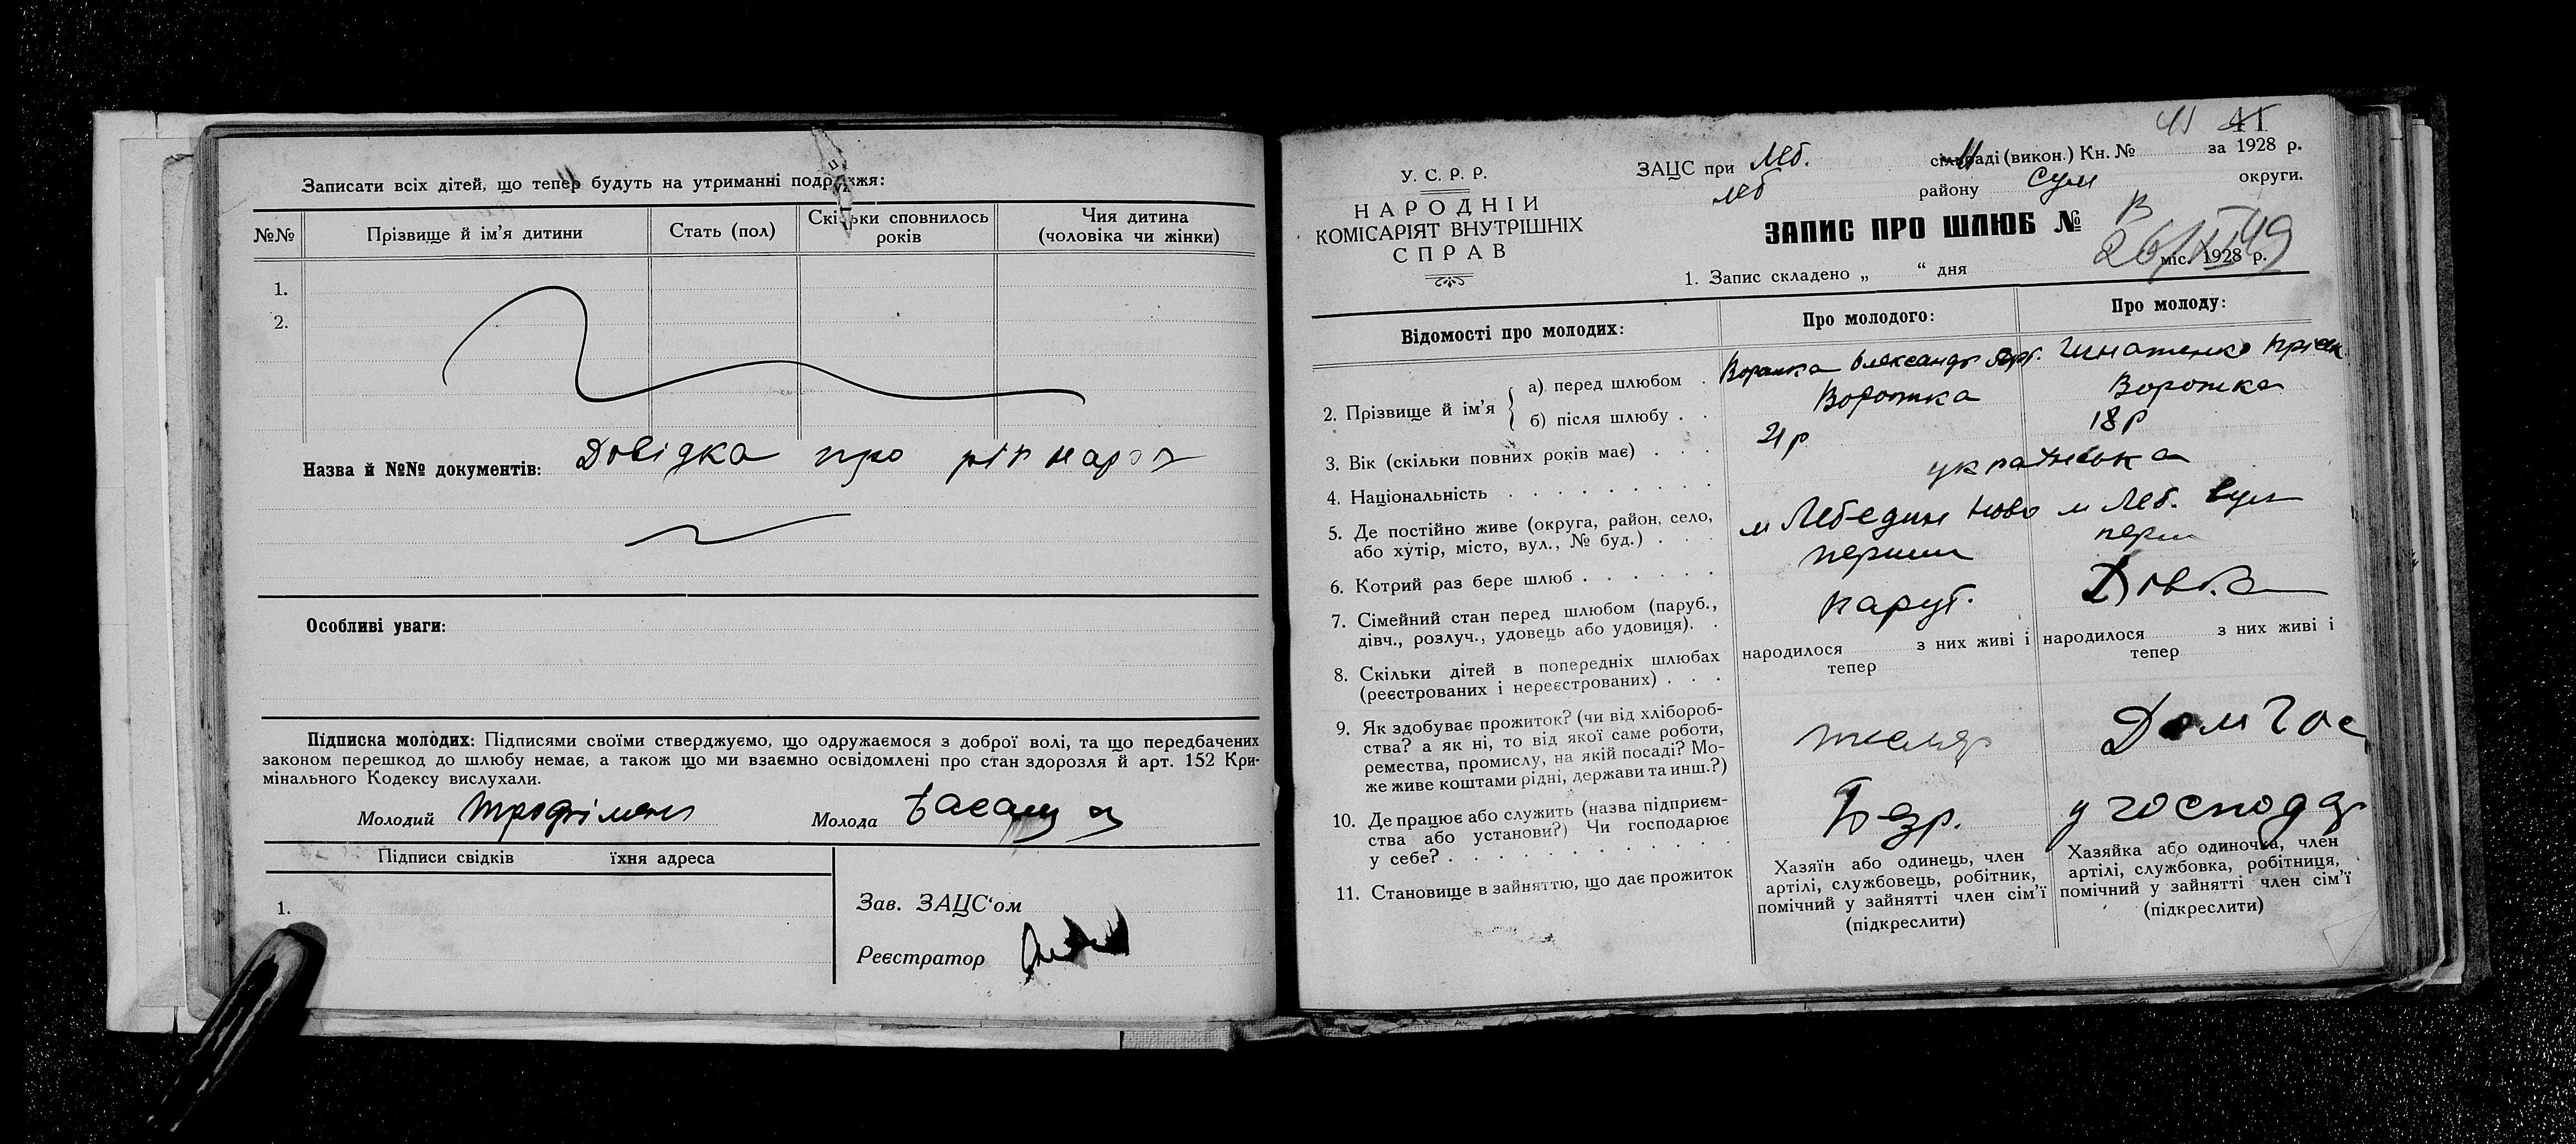 Записати всіх дітей, що тепер будуть на утриманні подружжя:
№№ Прізвище й ім’я дитини Стать (пол) Скільки сповнилось років Чия дитина (чоловіка чи жінки)
1.
2.
Назва й №№ документів: Довідка про рік народ
Особливі уваги:
Підписка молодих: Підписями своїми стверджуємо, що одружаємося з доброї волі, та що передбачених
законом перешкод до шлюбу немає, а також що ми взаємно освідомлені про стан здоровля й арт. 152 Кри-
мінального Кодексу вислухали.
Молодий Молода
Підписи свідків їхня адреса
1.
Зав. ЗАЦС‘ом
Реєстратор
41 41
У. С. Р. Р.
НАРОДНІЙ
КОМІСАРІЯТ ВНУТРІШНІХ
СПРАВ
ЗАЦС при Леб. сільраді (викон.) Кн. № за 1928 р.
Леб району Сум округи.
ЗАПИС ПРО ШЛЮБ №
1. Запис складено „ “ дня 26/XI міс. 1928 р.
Відомості про молодих: Про молодого: Про молоду:
2. Прізвище й ім’я
а) перед шлюбом . Олександр
б) після шлюбу . . Ворожка Ворожка
3. Вік (скільки повних років має) . . . 21 р 18 р
4. Національність . . . . . . . . . українська
5. Де постійно живе (округа, район, село,
або хутір, місто, вул., № буд.) . . . м Лебедин м Леб.
6. Котрий раз бере шлюб . . . . . . перший перш
7. Сімейний стан перед шлюбом (паруб.,
дівч., розлуч., удовець або удовиця). . паруб. Дівка
8. Скільки дітей в попередніх шлюбах
(реєстрованих і нереєстрованих) . . .
народилося з них живі і
тепер
народилося з них живі і
тепер
9. Як здобуває прожиток? (чи від хлібороб-
ства? а як ні, то від якої саме роботи,
ремества, промислу, на якій посаді? Мо-
же живе коштами рідні, держави та инш.?)
тесляр Дом гос
10. Де працює або служить (назва підприєм-
ства або установи?) Чи господарює
у себе? . . . . . . . . . . . .
Безр. у господар
11. Становище в зайняттю, що дає прожиток
Хазяїн або одинець, член
артілі, службовець, робітник,
помічний у зайнятті член сім’ї
(підкреслити)
Хазяйка або одиночка, член
артілі, службовка, робітниця,
помічний у зайнятті член сім’ї
(підкреслити)